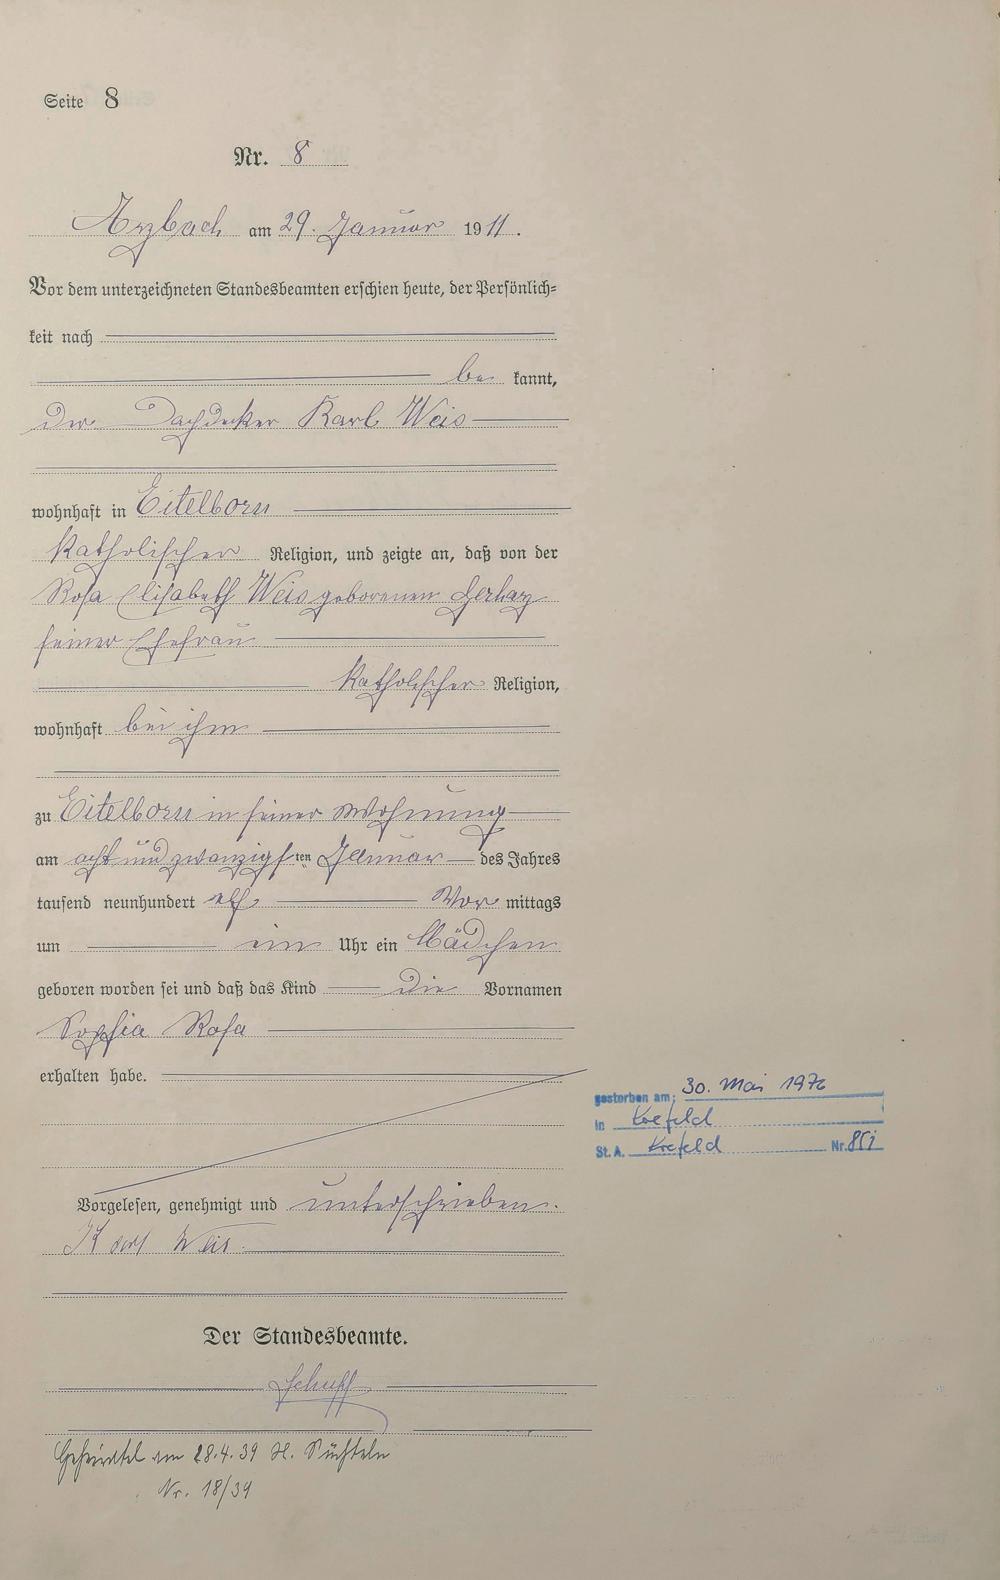 Seite 8
Nr. 8
Arzbach am 29. Januar 1911.
Vor dem unterzeichneten Standesbeamten erschien heute, der Persönlich=
keit nach
be kannt,
der Dachdecker Karl Weis
wohnhaft in Eitelborn
katholischer Religion, und zeigte an, daß von der
Rosa Elisabeth Weis geborenen Gerharz
seiner Ehefrau
katholischer Religion,
wohnhaft bei ihm
zu Eitelborn in seiner Wohnung
am acht und zwanzigsten Januar des Jahres
tausend neunhundert elf Vor mittags
um ein Uhr ein Mädchen
geboren worden sei und daß das Kind die Vornamen
Sophia Rosa
erhalten habe.
gestorben am: 30. Mai 1976
in Krefeld
St.A. Krefeld Nr.
Vorgelesen, genehmigt und unterschrieben.
Karl Weis.
Der Standesbeamte.
Geheiratet am 28.4.39 St. Süchteln
Nr. 18/39